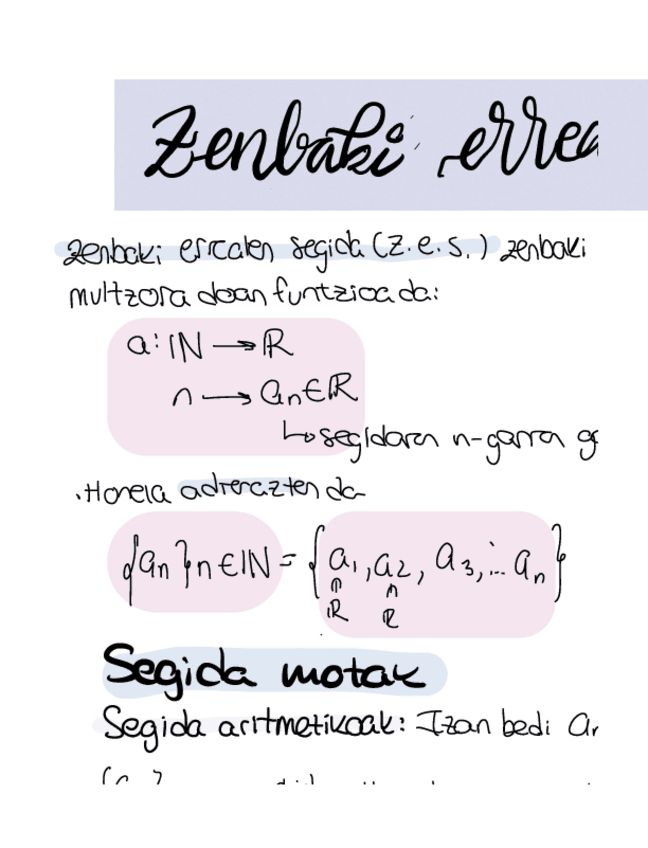 Zenbaki errea
Zenbaki errealen segida (z.e.s.) zenbaki
multzora doan funtzioa da:
a: ℕ → ℝ
n → aₙ ∈ ℝ
↳ segidaren n-garren g
. Honela adierazten da
{aₙ}n∈ℕ = {a₁, a₂, a₃, ... aₙ}
∩ ∩
ℝ ℝ
Segida motak
Segida aritmetikoak: Izan bedi ar